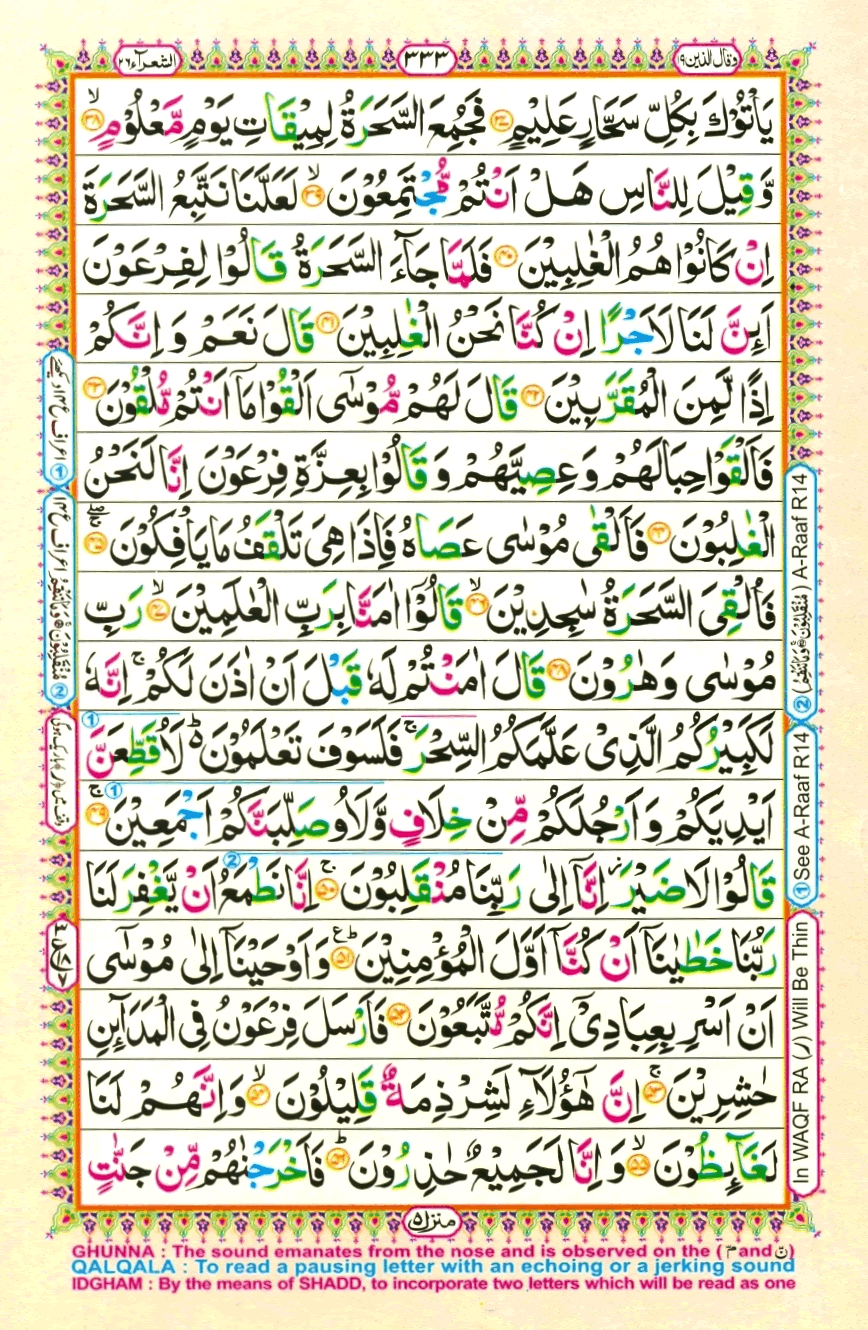 وقال الذين ١٩
٣٣٣
الشعرآء ٢٦
يَاْتُوْكَ بِكُلِّ سَحَّارٍ عَلِيْمٍ ۝٣٧ فَجُمِعَ السَّحَرَةُ لِمِيْقَاتِ يَوْمٍ مَّعْلُوْمٍ ۙ۝٣٨
وَّ قِيْلَ لِلنَّاسِ هَلْ اَنْتُمْ مُّجْتَمِعُوْنَ ۙ۝٣٩ لَعَلَّنَا نَتَّبِعُ السَّحَرَةَ
اِنْ كَانُوْا هُمُ الْغٰلِبِيْنَ ۝٤٠ فَلَمَّا جَآءَ السَّحَرَةُ قَالُوْا لِفِرْعَوْنَ
اَئِنَّ لَنَا لَاَجْرًا اِنْ كُنَّا نَحْنُ الْغٰلِبِيْنَ ۝٤١ قَالَ نَعَمْ وَ اِنَّكُمْ
اِذًا لَّمِنَ الْمُقَرَّبِيْنَ ۝٤٢ قَالَ لَهُمْ مُّوْسٰٓى اَلْقُوْا مَاۤ اَنْتُمْ مُّلْقُوْنَ ۝٤٣
فَاَلْقَوْا حِبَالَهُمْ وَ عِصِيَّهُمْ وَ قَالُوْا بِعِزَّةِ فِرْعَوْنَ اِنَّا لَنَحْنُ
الْغٰلِبُوْنَ ۝٤٤ فَاَلْقٰى مُوْسٰى عَصَاهُ فَاِذَا هِيَ تَلْقَفُ مَا يَاْفِكُوْنَ ۝٤٥
فَاُلْقِيَ السَّحَرَةُ سٰجِدِيْنَ ۙ۝٤٦ قَالُوْۤا اٰمَنَّا بِرَبِّ الْعٰلَمِيْنَ ۙ۝٤٧ رَبِّ
مُوْسٰى وَ هٰرُوْنَ ۝٤٨ قَالَ اٰمَنْتُمْ لَهٗ قَبْلَ اَنْ اٰذَنَ لَكُمْ ۚ اِنَّهٗ
لَكَبِيْرُكُمُ الَّذِيْ عَلَّمَكُمُ السِّحْرَ ۚ فَلَسَوْفَ تَعْلَمُوْنَ ؕ لَاُقَطِّعَنَّ
اَيْدِيَكُمْ وَ اَرْجُلَكُمْ مِّنْ خِلَافٍ وَّ لَاُوصَلِّبَنَّكُمْ اَجْمَعِيْنَ ۚ۝٤٩
قَالُوْا لَا ضَيْرَ ؗ اِنَّاۤ اِلٰى رَبِّنَا مُنْقَلِبُوْنَ ۚ۝٥٠ اِنَّا نَطْمَعُ اَنْ يَّغْفِرَ لَنَا
رَبُّنَا خَطٰيٰنَاۤ اَنْ كُنَّاۤ اَوَّلَ الْمُؤْمِنِيْنَ ؕ۝٥١ وَ اَوْحَيْنَاۤ اِلٰى مُوْسٰۤى
اَنْ اَسْرِ بِعِبَادِيْۤ اِنَّكُمْ مُّتَّبَعُوْنَ ۝٥٢ فَاَرْسَلَ فِرْعَوْنُ فِي الْمَدَآئِنِ
حٰشِرِيْنَ ۚ۝٥٣ اِنَّ هٰۤؤُلَآءِ لَشِرْذِمَةٌ قَلِيْلُوْنَ ۙ۝٥٤ وَ اِنَّهُمْ لَنَا
لَغَآئِظُوْنَ ۙ۝٥٥ وَ اِنَّا لَجَمِيْعٌ حٰذِرُوْنَ ؕ۝٥٦ فَاَخْرَجْنٰهُمْ مِّنْ جَنّٰتٍ
A-Raaf R14
② (مُنْقَلِبُوْنَ
① See A-Raaf R14
In WAQF RA (ر) Will Be Thin
منزل ٥
GHUNNA : The sound emanates from the nose and is observed on the ( مّ and نّ )
QALQALA : To read a pausing letter with an echoing or a jerking sound
IDGHAM : By the means of SHADD, to incorporate two letters which will be read as one